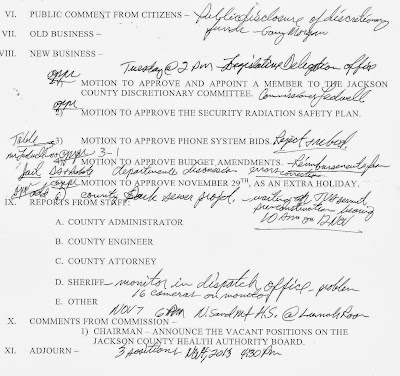 VI. PUBLIC COMMENT FROM CITIZENS – Public disclosure of discretionary
VII. OLD BUSINESS – funds - Gary Morgan
VIII. NEW BUSINESS –
Tuesday @ 2 PM - Legislative Delegation office
1) MOTION TO APPROVE AND APPOINT A MEMBER TO THE JACKSON
COUNTY DISCRETIONARY COMMITTEE. Commissioner
2) MOTION TO APPROVE THE SECURITY RADIATION SAFETY PLAN.
Table 3) MOTION TO APPROVE PHONE SYSTEM BIDS. Reject
3-1
4) MOTION TO APPROVE BUDGET AMENDMENTS. - Reimbursements from
Jail departments discussion errors correction
5) MOTION TO APPROVE NOVEMBER 29TH, AS AN EXTRA HOLIDAY.
6) county Park sewer project, waiting
IX. REPORTS FROM STAFF: preconstruction hearing
10 AM on 12 NOV
A. COUNTY ADMINISTRATOR
B. COUNTY ENGINEER
C. COUNTY ATTORNEY
D. SHERIFF – monitor in dispatch office problem
16 cameras on monitor
E. OTHER
NOV 7 6 PM N. Sand Mt H.S. @ Lunch Room
X. COMMENTS FROM COMMISSION –
1) CHAIRMAN – ANNOUNCE THE VACANT POSITIONS ON THE
JACKSON COUNTY HEALTH AUTHORITY BOARD.
XI. ADJOURN – 3 positions 2013 4:30 PM